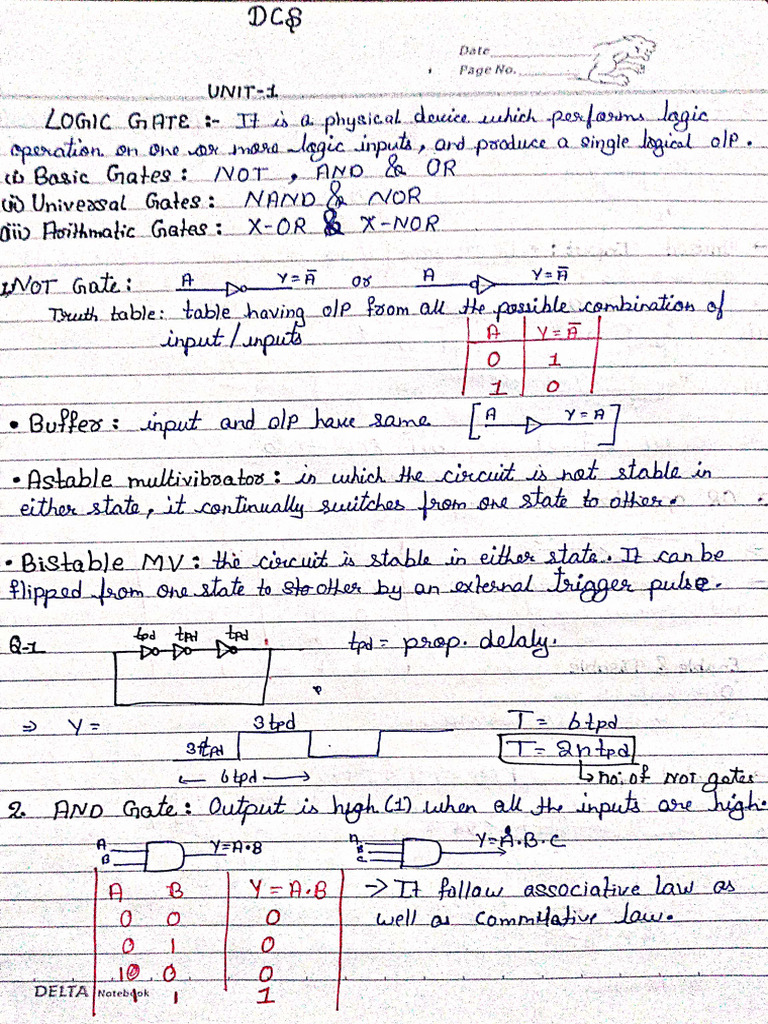 DCS
Date
Page No.
UNIT-1
LOGIC GATE :- It is a physical device which performs logic
operation on one or more logic inputs, and produce a single logical o/p.
(i) Basic Gates: NOT, AND & OR
(ii) Universal Gates: NAND & NOR
(iii) Arithmatic Gates: X-OR & X-NOR
1. NOT Gate: A Y=Ā or A Y=Ā
Truth table: table having o/p from all the possible combination of
input/inputs
A Y=Ā
0 1
1 0
• Buffer: input and o/p have same. [A Y=A]
• Astable multivibrator: in which the circuit is not stable in
either state, it continually switches from one state to other.
• Bistable MV: the circuit is stable in either state. It can be
flipped from one state to other by an external trigger pulse.
Q-1 tpd tpd tpd tpd = prop. delaly.
⇒ Y= 3tpd T= 6tpd
3tpd T= 2ntpd
← 6tpd → ↳ no. of NOT gates
2. AND Gate: Output is high (1) when all the inputs are high.
A B Y=A·B A B C Y=A·B·C
A B Y=A·B → It follow associative law as
0 0 0 well as commutative law.
0 1 0
1 0 0
1 1 1
DELTA Notebook